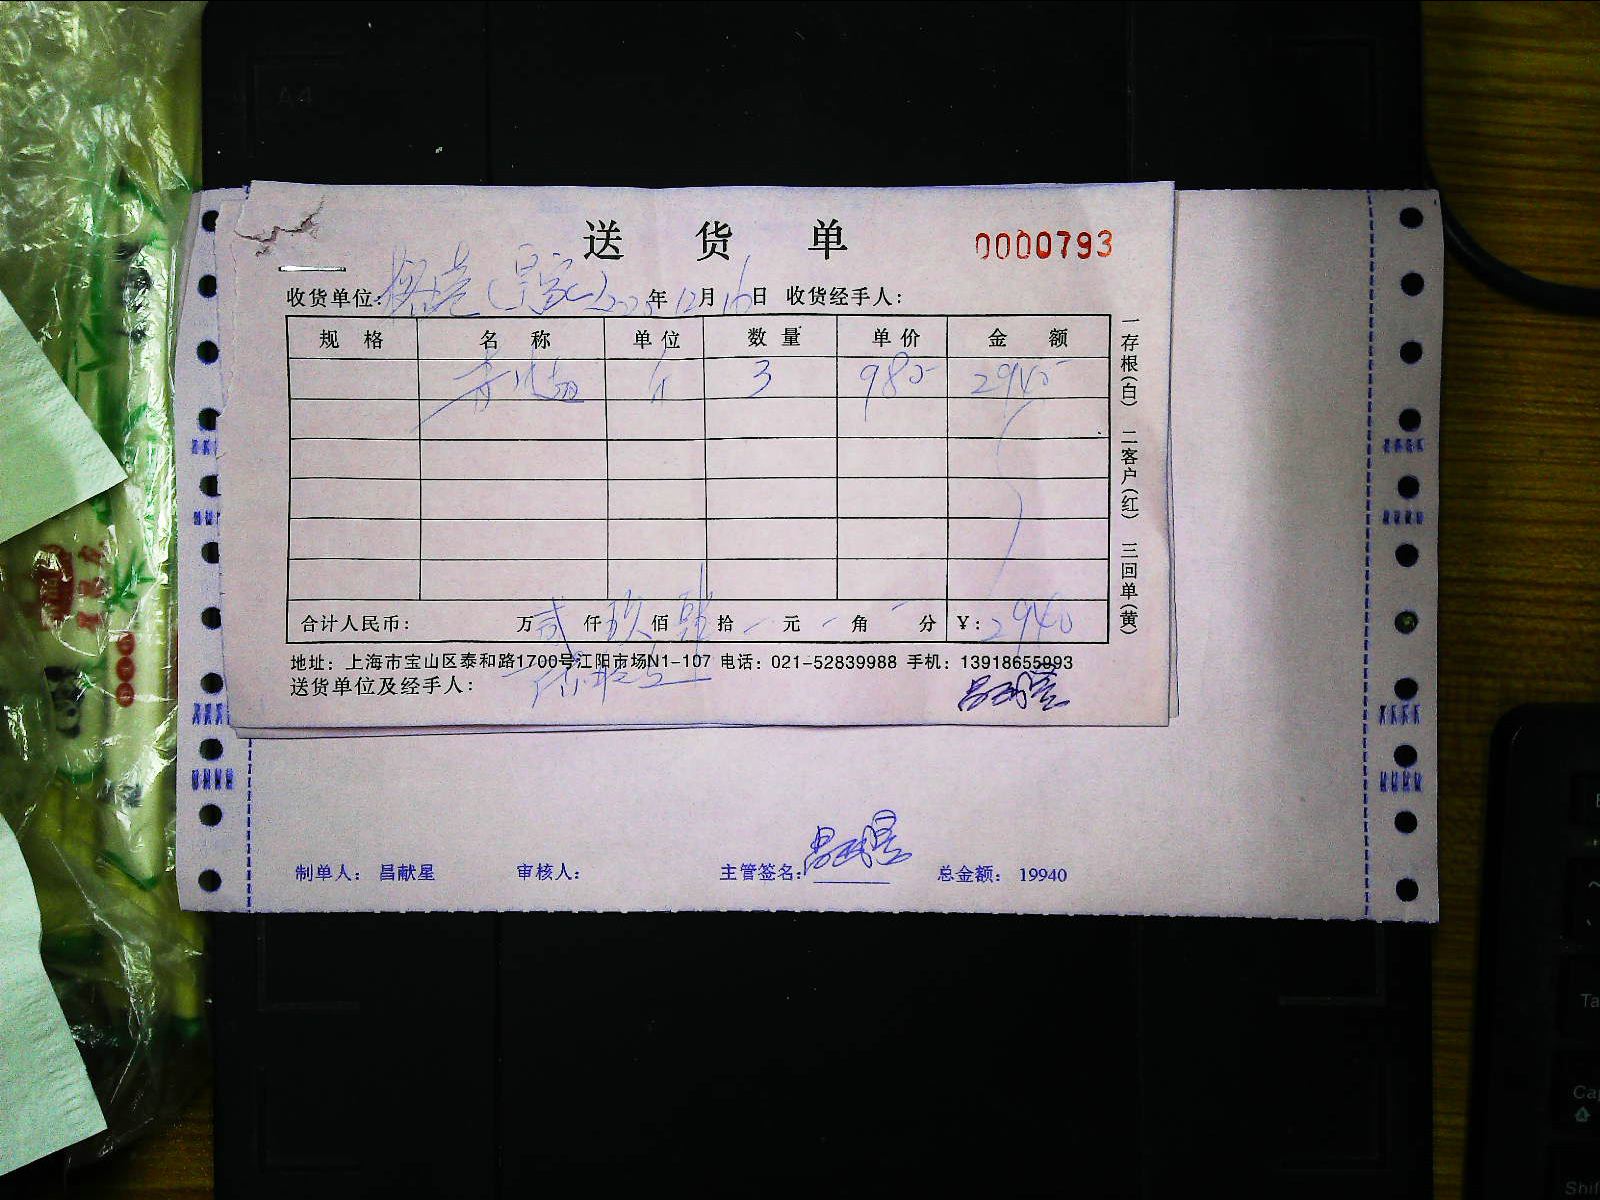 送 货 单
0000793
收货单位: 年12月16日 收货经手人:
规 格 名 称 单 位 数 量 单 价 金 额
3 980 2940
合计人民币: 万贰仟玖佰肆拾 元 角 分 ¥: 2940
地址: 上海市宝山区泰和路1700号江阳市场N1-107 电话: 021-52839988 手机: 13918655993
送货单位及经手人:
一存根(白) 二客户(红) 三回单(黄)
制单人: 昌献星 审核人: 主管签名: 总金额: 19940
A4